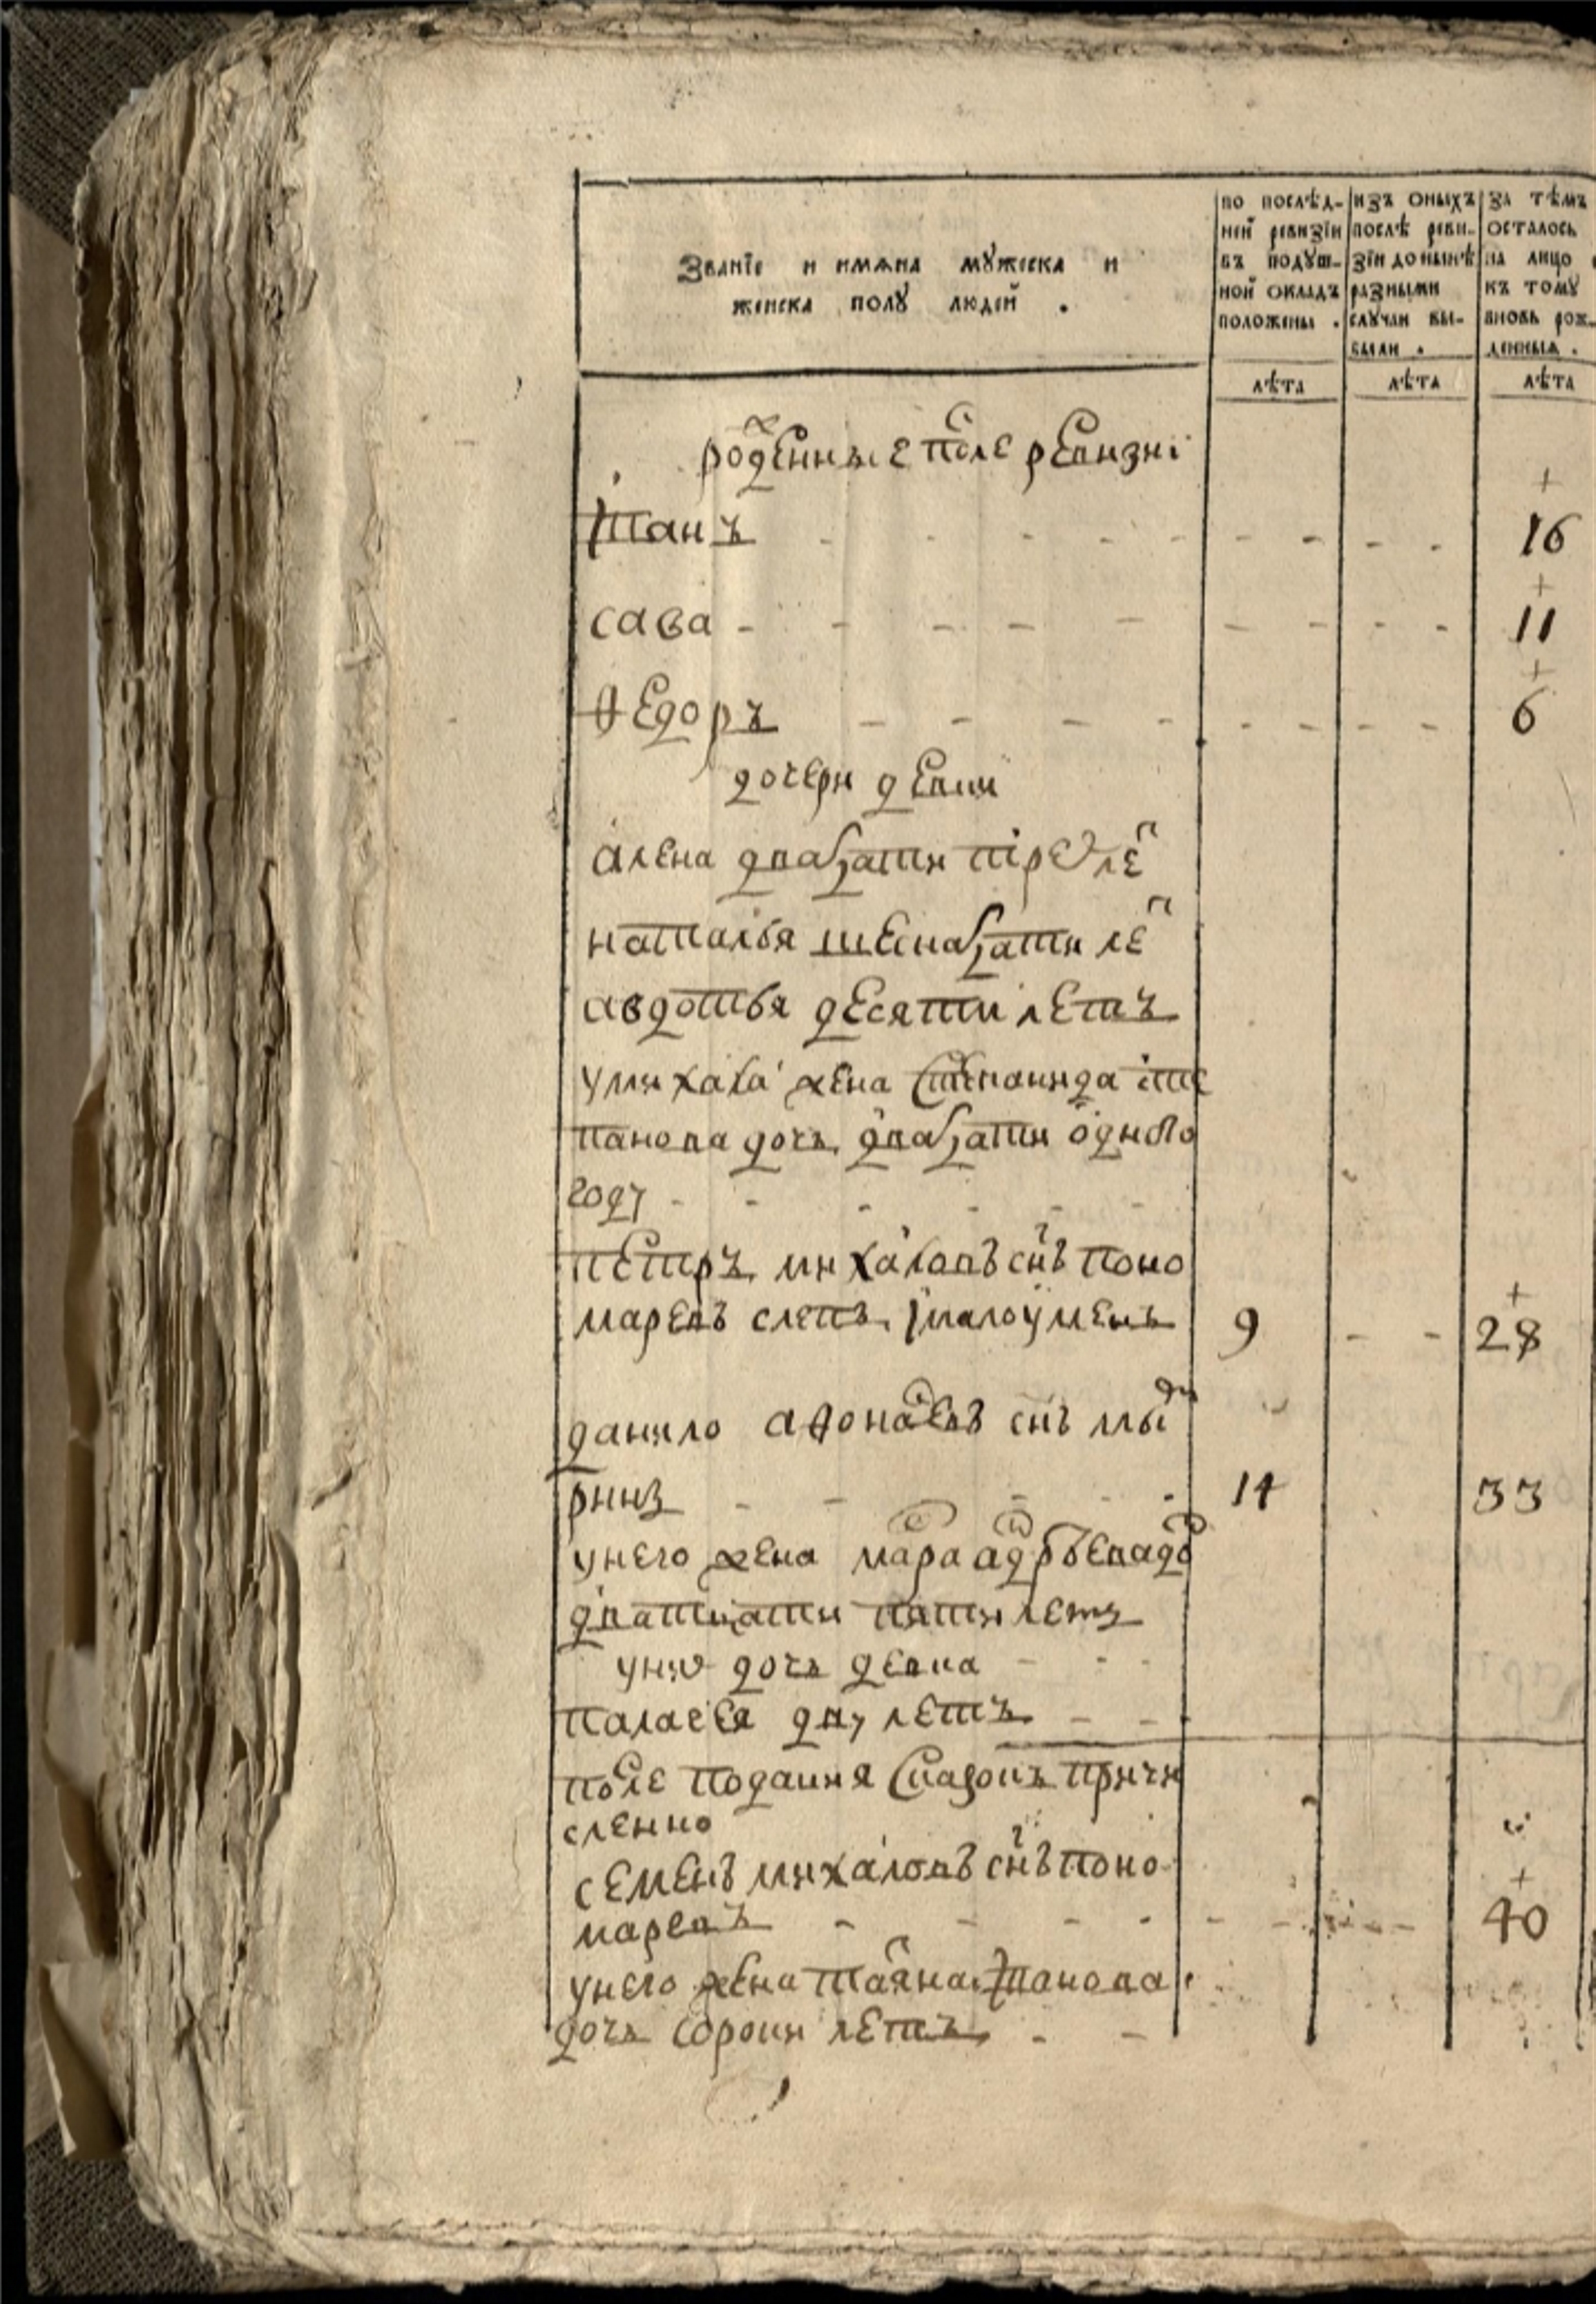 Званїе и имѧна мꙋжеска и
женска полꙋ людей .
по послѣд-
ней ревизїи
въ подꙋш-
ной окладъ
положены .
изъ оныхъ
послѣ реви-
зїи до нынѣ
разными
слꙋчаи вы-
были .
за тѣмъ
осталось
на лицо
къ томꙋ
вновь рож-
денныѧ .
лѣта лѣта лѣта
роженные после ревизиі
иванъ - - - - - - - - - 16
сава - - - - - - - - - 11
ѳедоръ - - - - - - - - 6
дочери девки
алена двадцати трех лет
наталья шеснадцати лет
авдотья десяти летъ
умихаила жена степанида сте
панова дочь двадцати одного
году - - - - -
петръ михаиловъ снъ поно
маревъ слепъ ималоуменъ 9 - - 28
данило аѳонасевъ снъ
14 33
унего жена
дватцати пяти летъ
уних дочь девка - - -
палагея дву летъ - -
после подания сказокъ причи
сленно
семенъ михаиловъ снъ поно
маревъ - - - - - - - - 40
унего жена татяна иванова
дочь сорока летъ - -